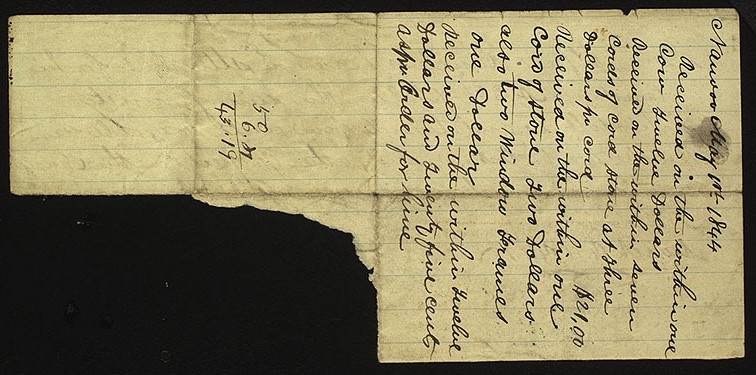 Nauvoo May 1st 1844
Received on the within one
Cow Twelve Dollars
Received on the within seven
Cords of Cord Stone at three
Dollars pr cord $21,00
Received on the within one
Cord of stone Two Dollars
also two Window Fraimes
one Dollar
Received on the within Twelve
Dollars and Twenty five cents
as pr Order for Lime
50
6.81
43.19